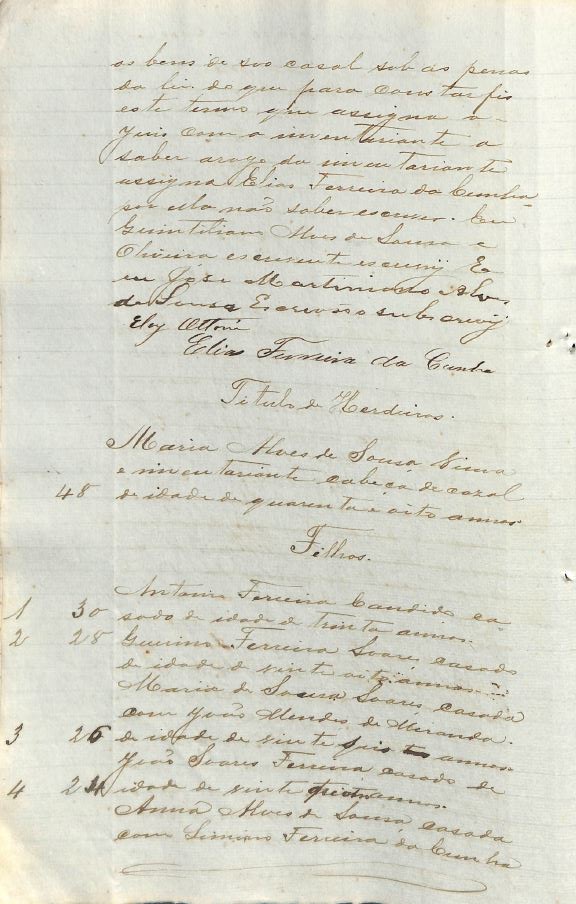 os bens de seo casal sob as penas
da lei. do que para constar fis
este termo que assigna o
Juis com a inventariante a
saber arogo da inventariante
assigna Elias Ferreira da Cunha
por ella não saber escrever. Eu
Quintiliano Alves de Sousa e
Oliveira escrevente escrevij E
eu José Martiniano Alves
de Sousa Escrivão subscrevij
Eloy Ottoni
Elias Ferreira da Cunha
Titulo de Herdeiros.
Maria Alves de Sousa Viuva
e inventariante cabeça de cazal
48 de idade de quarenta e oito annos
Filhos.
Antonio Ferreira Candido ca-
1 30 sado de idade de trinta annos.
2 28 Guerino Ferreira Soares casado
de idade de vinte oito annos
Maria de Sousa Soares, casada
com João Mendes de Miranda.
3 26 de idade de vinte seis annos.
João Soares Ferreira casado de
4 24 idade de vinte annos.
Anna Alves de Sousa, casada
com Ferreira da Cunha